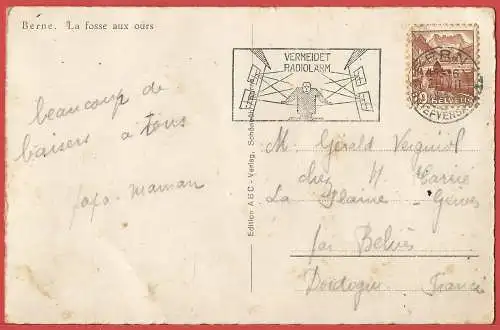 Berne. La fosse aux ours
beaucoup de
baisers a tous
papa. maman
Edition ABC - Verlag,
VERMEIDET
RADIOLÄRM
BERN
HELVETIA
M. Gérald
chez M
La Plaine
par Belvès
Dordogne France